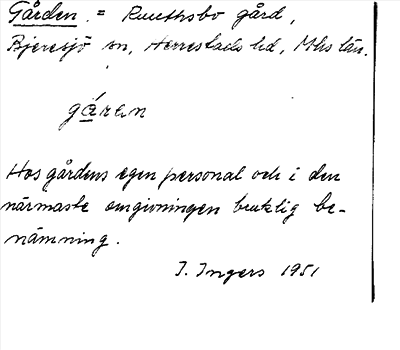 Gården = Ruuthsbo gård,
Bjeresjö sn, Herrestads hd, Mhs län.
gá̱ren
Hos gårdens egen personal och i den
närmaste omgivningen bruklig be-
nämning.
I. Ingers 1951